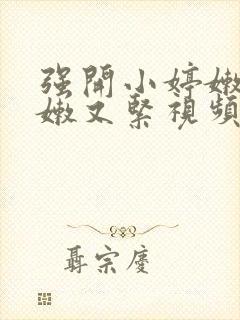 强開小婷嫩
嫩又緊視頻
聶宗慶